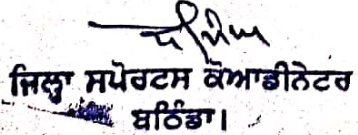 ਜਿਲ੍ਹਾ ਸਪੋਰਟਸ ਕੋਆਡੀਨੇਟਰ
ਬਠਿੰਡਾ।